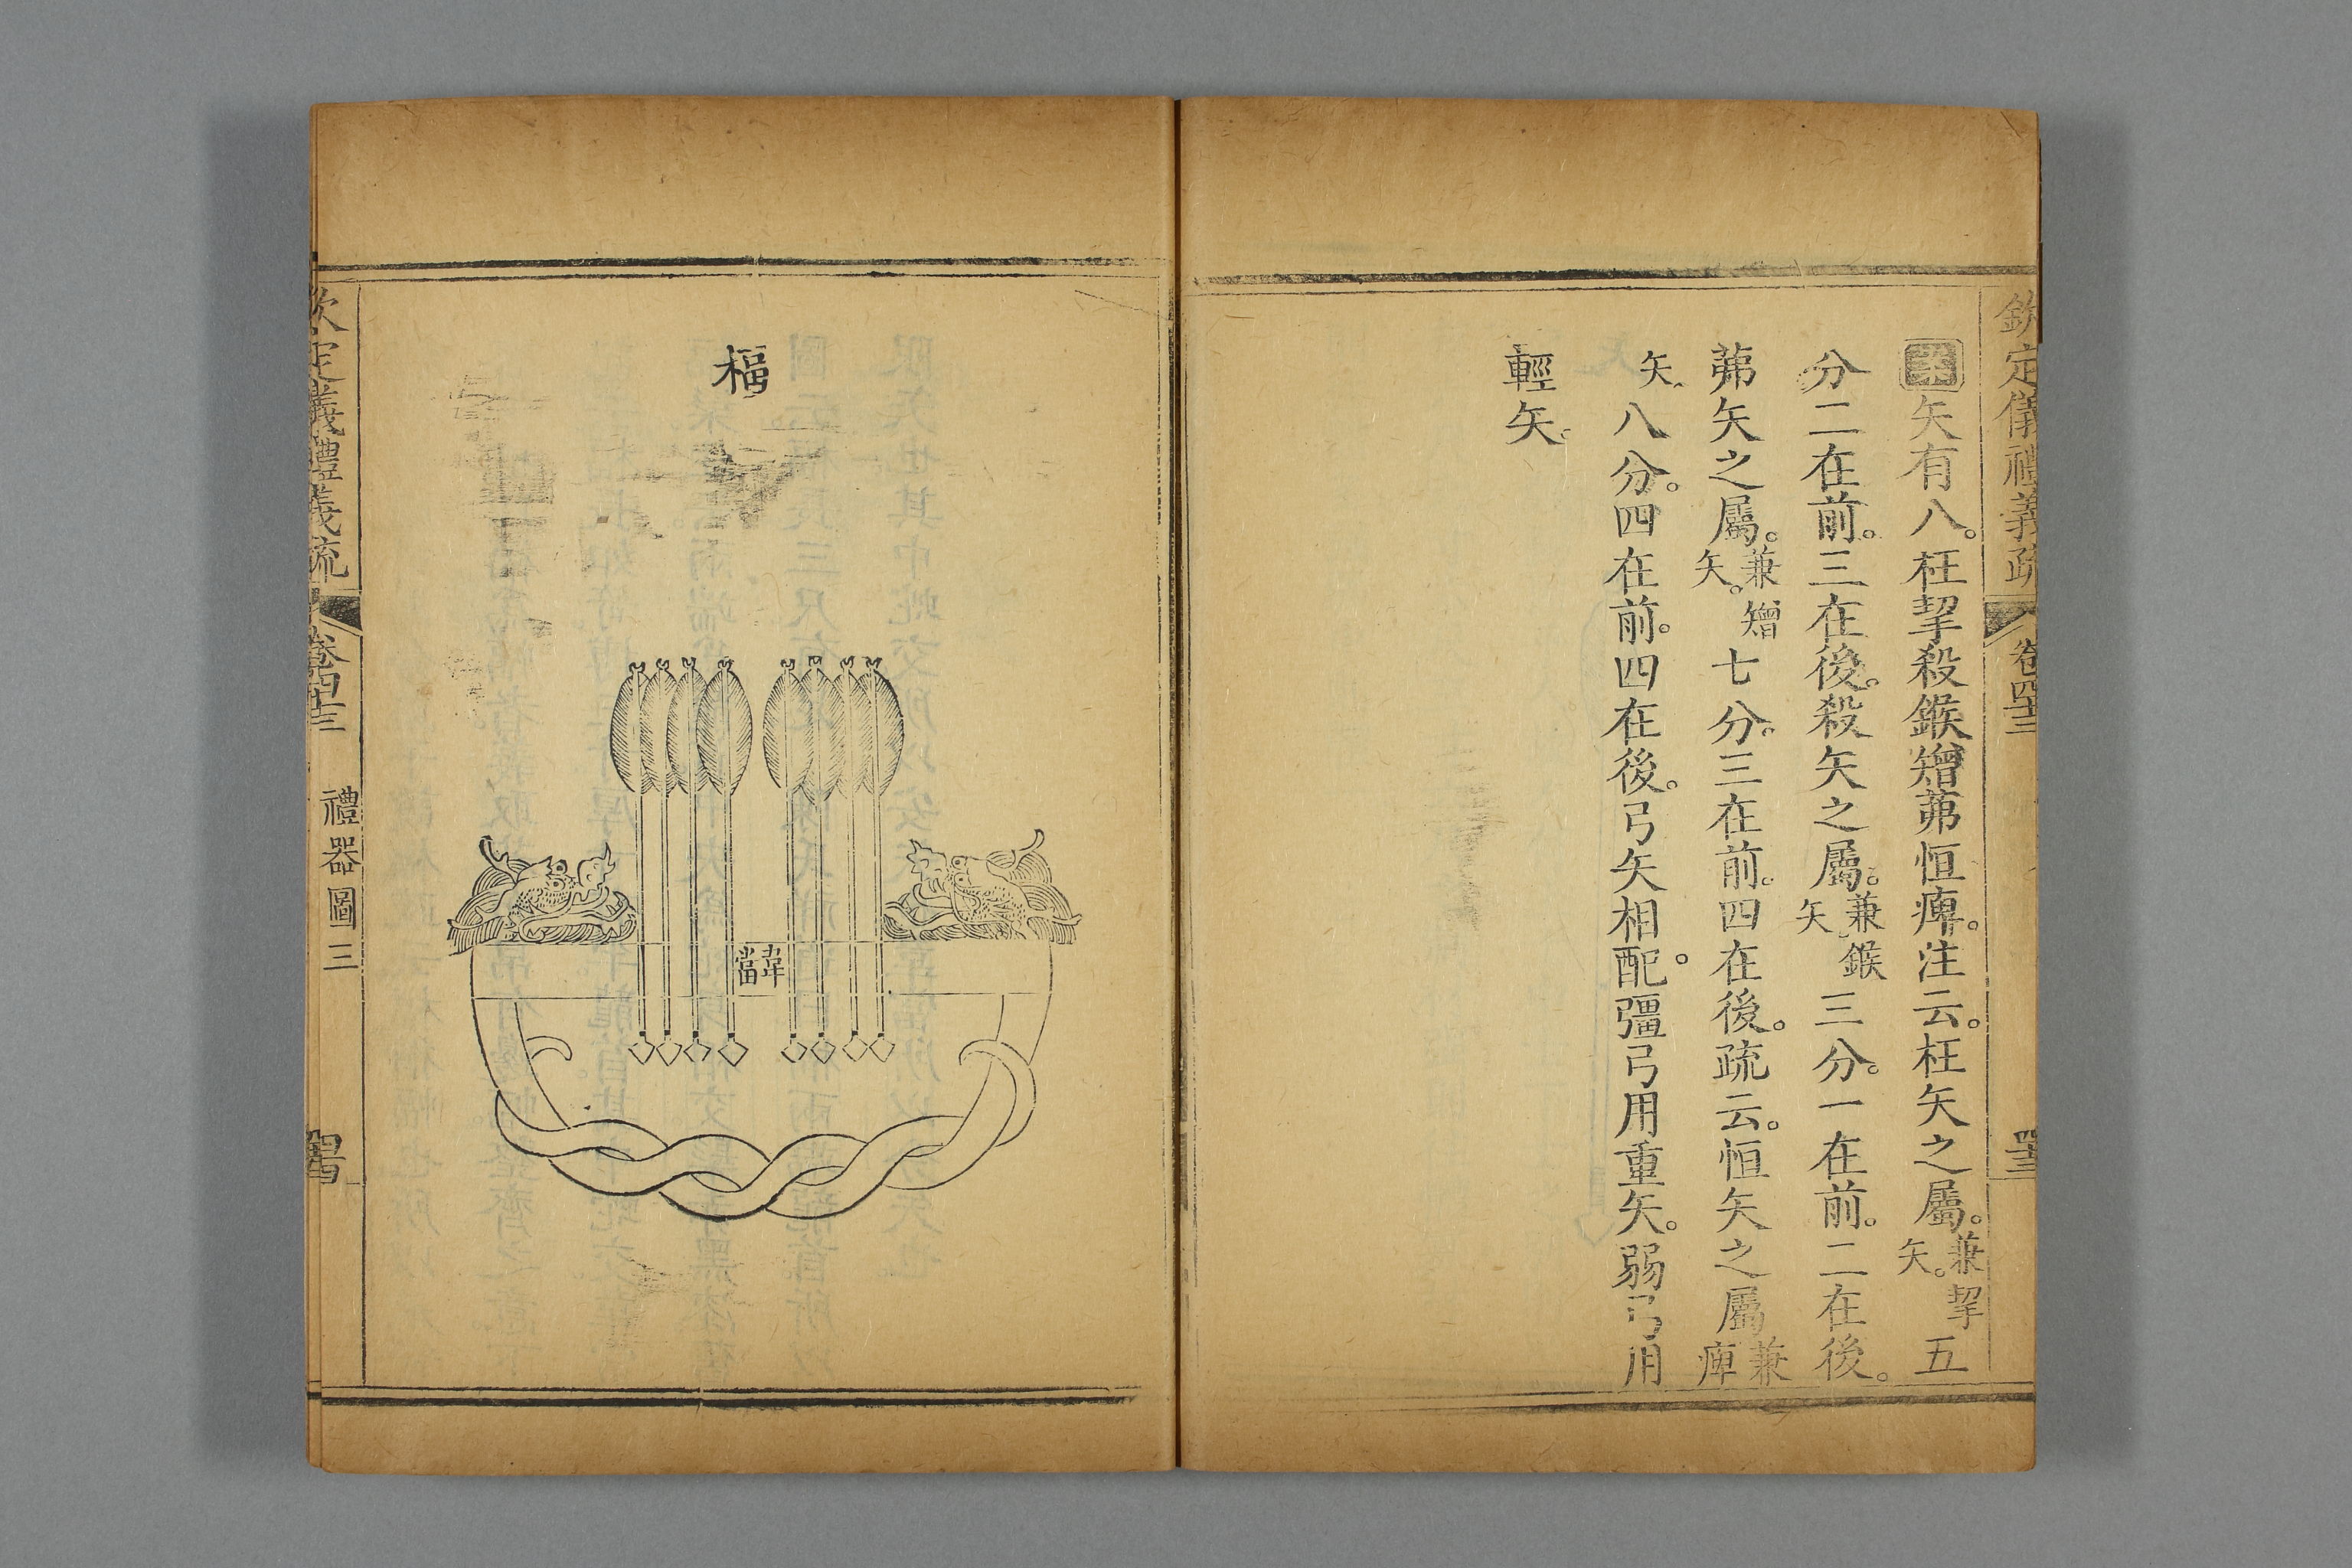 欽定儀禮義疏 卷四十三 四十三
矢有八。枉挈殺鍭矰茀恒痺。注云。枉矢之屬。兼挈矢。五
分二在前。三在後。殺矢之屬。兼鍭矢。三分。一在前。二在後。
茀矢之屬。兼矰矢。七分。三在前。四在後。疏云。恒矢之屬兼痺
矢。八分。四在前。四在後。弓矢相配。彊弓用重矢。弱弓用
輕矢。
楅
韋當
欽定儀禮義疏 卷四十三 禮器圖三 四十四